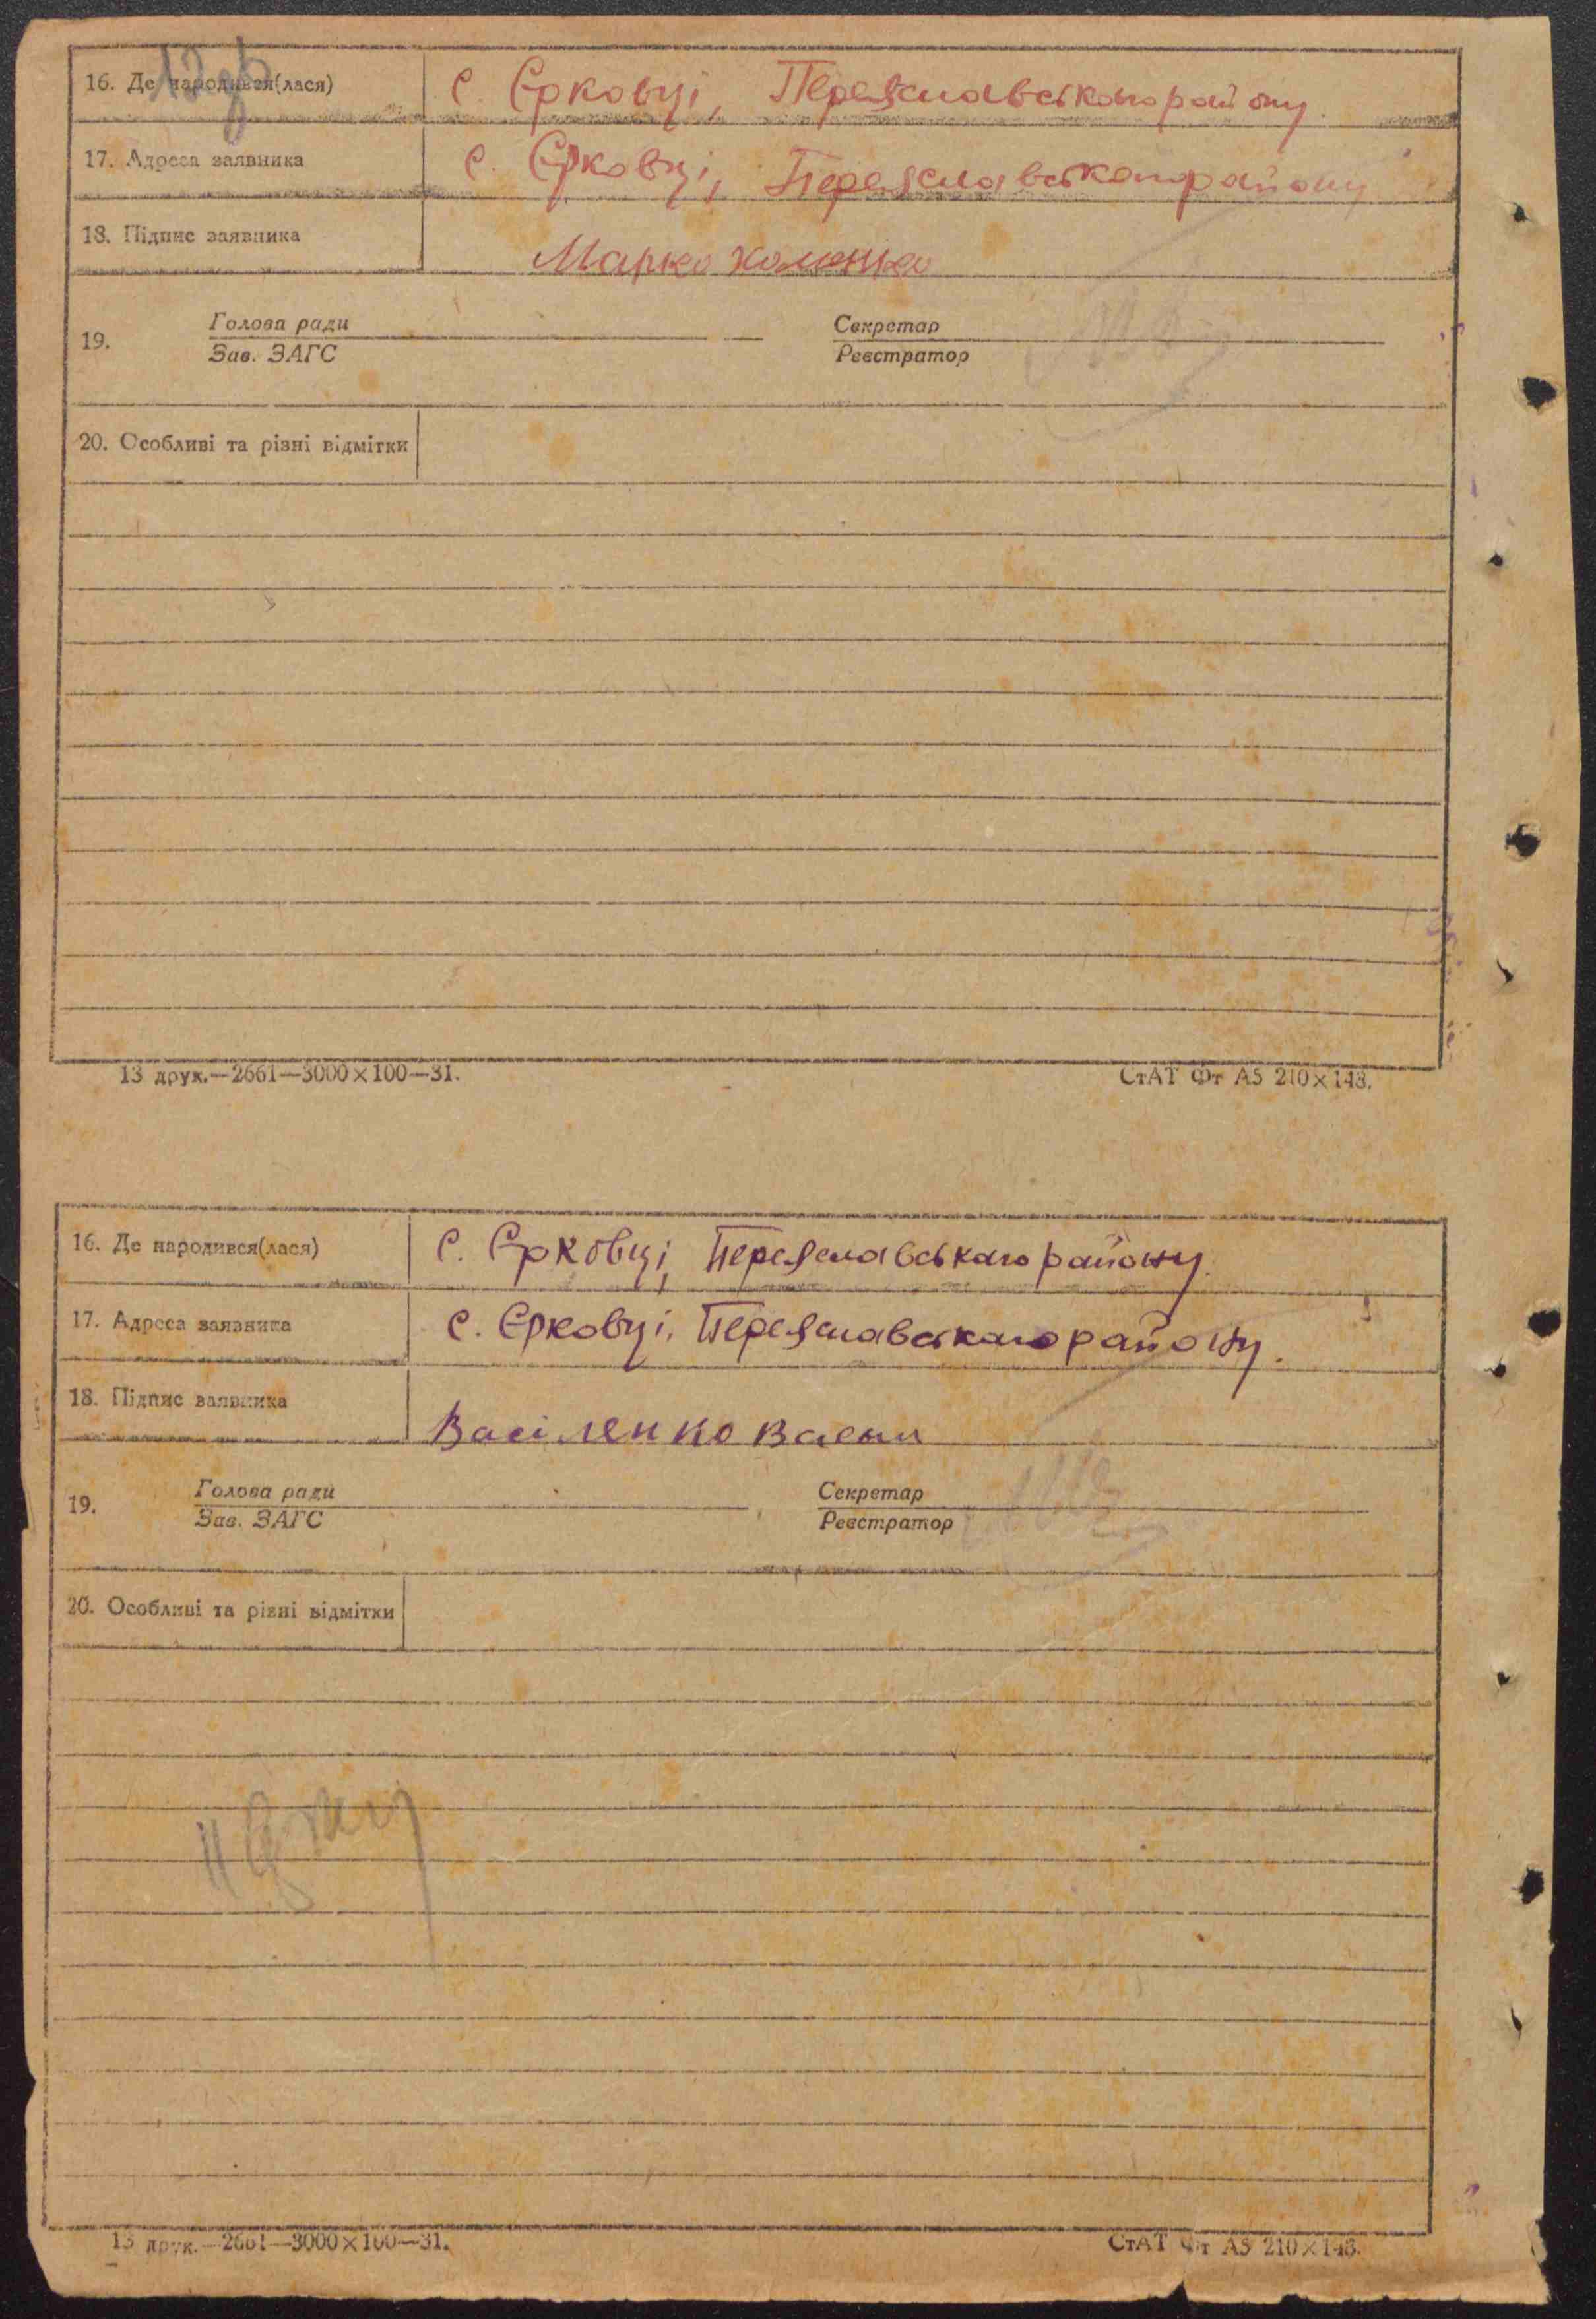 16. Де народився(лася) с. Єрковці, Переяславського району.
17. Адреса заявника с. Єрковці, Переяславського району
18. Підпис заявника Марко Хоменко
19. Голова ради Секретар
Зав. ЗАГС Реєстратор
20. Особливі та різні відмітки
13 друк.—2661—3000×100—31. СтАТ Фт А5 210×148.
16. Де народився(лася) с. Єрковці, Переяславського району.
17. Адреса заявника с. Єрковці, Переяславського району.
18. Підпис заявника Васіленко Васыл
19. Голова ради Секретар
Зав. ЗАГС Реєстратор
20. Особливі та різні відмітки
13 друк.—2661—3000×100—31. СтАТ Фт А5 210×148.